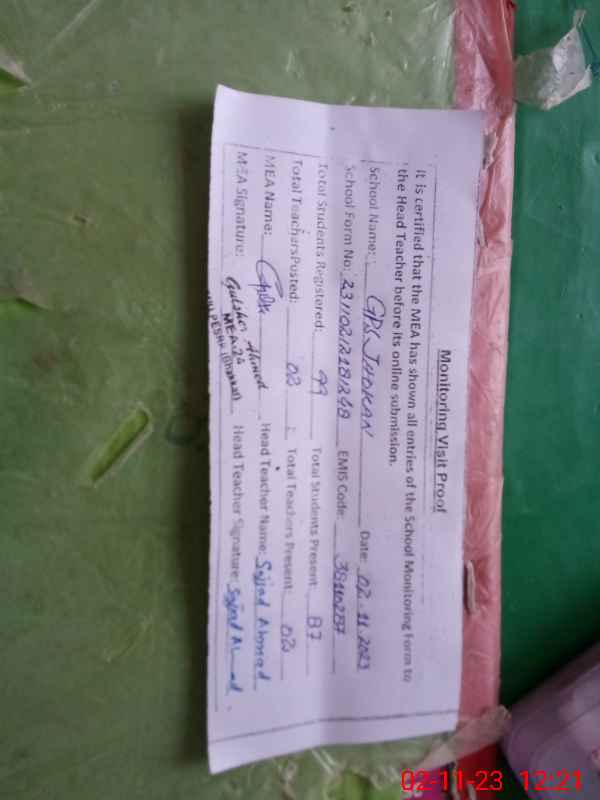 Monitoring Visit Proof
It is certified that the MEA has shown all entries of the School Monitoring Form to
the Head Teacher before its online submission.
School Name: GPS JHOKAN Date: 02.11.2023
School Form No: 23110212181248 EMIS Code: 38110257
Total Students Registered: 99 Total Students Present: 87
Total Teachers Posted: 02 Total Teachers Present: 02
MEA Name: Head Teacher Name: Sajjad Ahmad
MEA Signature: Gulsher Ahmed Head Teacher Signature: Sajjad Ahmad
MEA-24
02-11-23 12:21